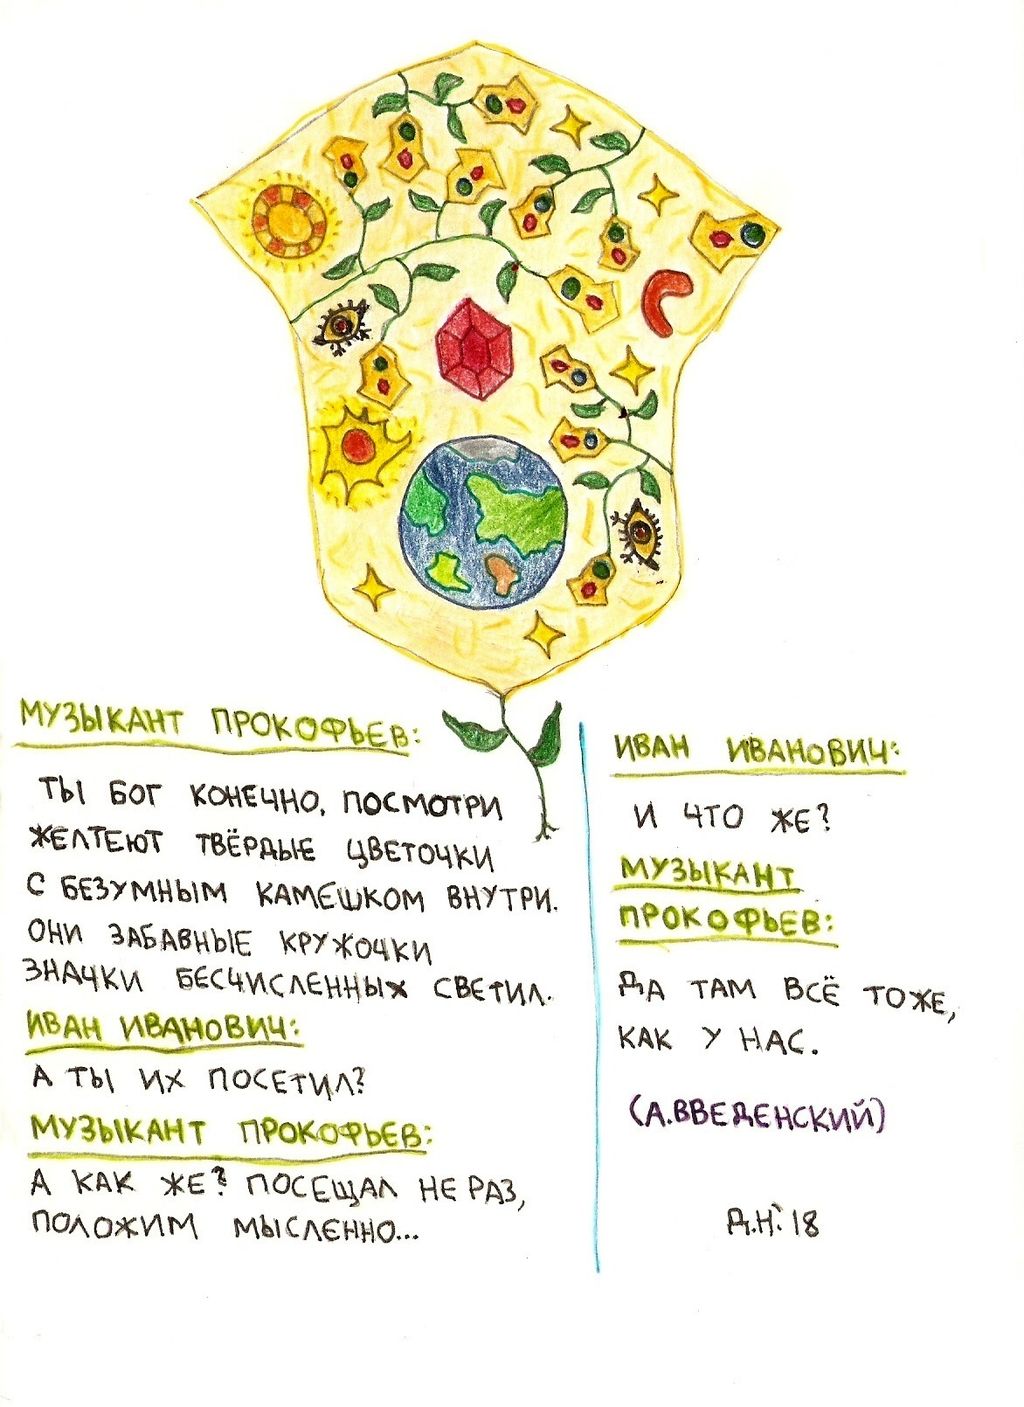 МУЗЫКАНТ ПРОКОФЬЕВ:
ТЫ БОГ КОНЕЧНО, ПОСМОТРИ
ЖЕЛТЕЮТ ТВЁРДЫЕ ЦВЕТОЧКИ
С БЕЗУМНЫМ КАМЕШКОМ ВНУТРИ.
ОНИ ЗАБАВНЫЕ КРУЖОЧКИ
ЗНАЧКИ БЕСЧИСЛЕННЫХ СВЕТИЛ.
ИВАН ИВАНОВИЧ:
А ТЫ ИХ ПОСЕТИЛ?
МУЗЫКАНТ ПРОКОФЬЕВ:
А КАК ЖЕ? ПОСЕЩАЛ НЕ РАЗ,
ПОЛОЖИМ МЫСЛЕННО...
ИВАН ИВАНОВИЧ:
И ЧТО ЖЕ?
МУЗЫКАНТ
ПРОКОФЬЕВ:
ДА ТАМ ВСЁ ТОЖЕ,
КАК У НАС.
(А.ВВЕДЕНСКИЙ)
Д.Н. 18